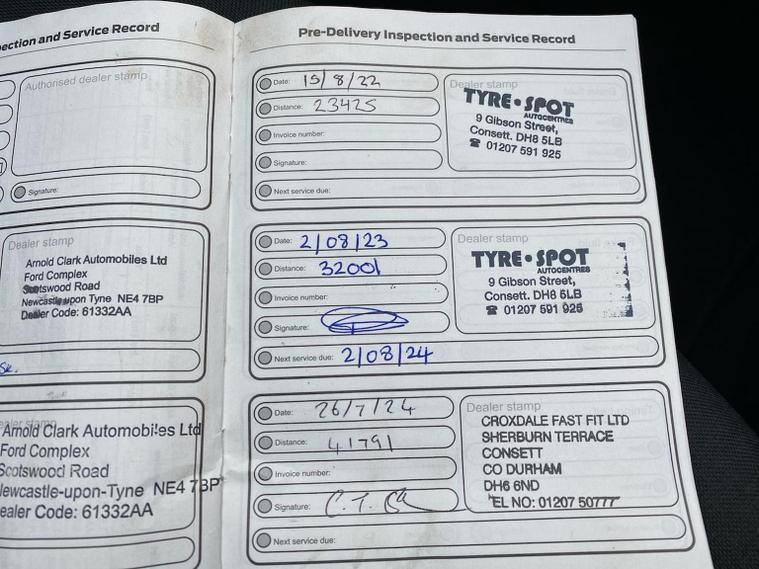 ection and Service Record
Authorised dealer stamp
Signature:
Dealer stamp
Arnold Clark Automobiles Ltd
Ford Complex
Scotswood Road
Newcastle upon Tyne NE4 7BP
Dealer Code: 61332AA
sk.
ealer stamp
Arnold Clark Automobiles Ltd
Ford Complex
Scotswood Road
Newcastle-upon-Tyne NE4 7BP
ealer Code: 61332AA
Pre-Delivery Inspection and Service Record
Date: 15/8/22
Distance: 23425
Invoice number:
Signature:
Next service due:
Dealer stamp
TYRE•SPOT
AUTOCENTRES
9 Gibson Street,
Consett. DH8 5LB
☎ 01207 591 925
Date: 2/08/23
Distance: 32001
Invoice number:
Signature:
Next service due: 2/08/24
Dealer stamp
TYRE•SPOT
AUTOCENTRES
9 Gibson Street,
Consett. DH8 5LB
☎ 01207 591 925
Date: 26/7/24
Distance: 41791
Invoice number:
Signature:
Next service due:
Dealer stamp
CROXDALE FAST FIT LTD
SHERBURN TERRACE
CONSETT
CO DURHAM
DH8 6ND
TEL NO: 01207 50777